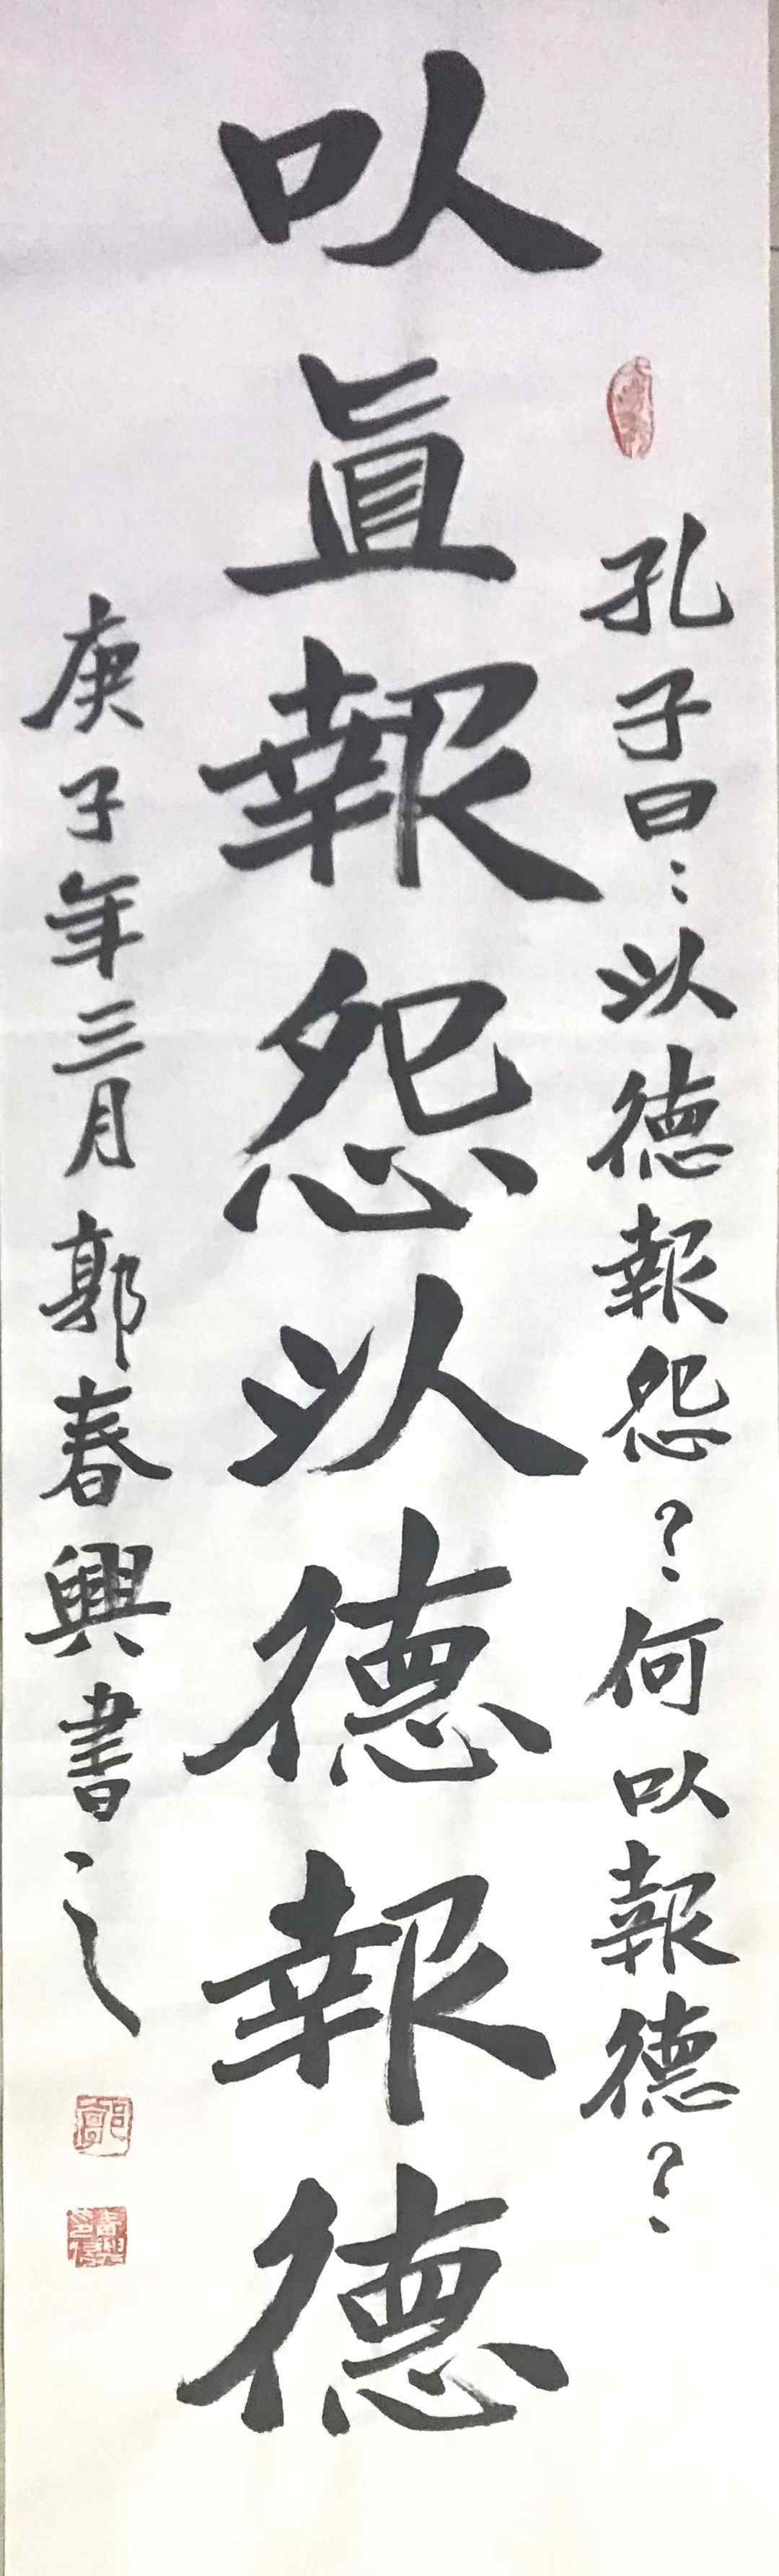 孔子曰：以德報怨？何以報德？
以直報怨以德報德
庚子年三月郭春興書之
郭